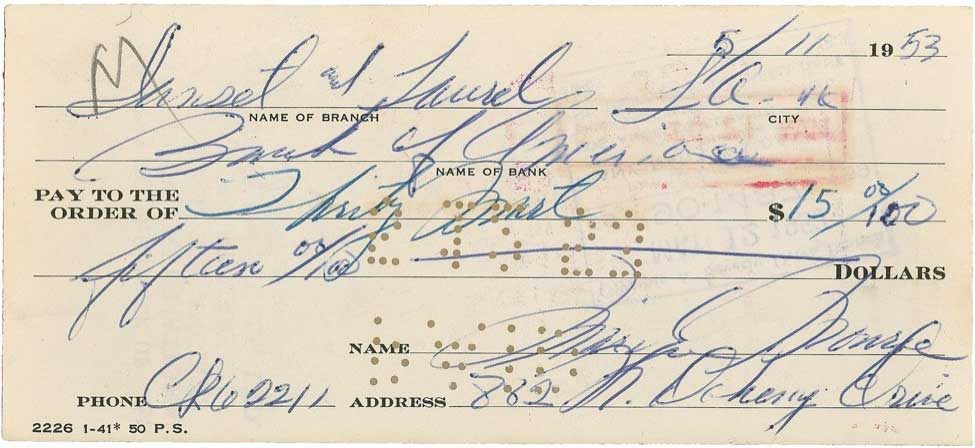 5/11 1953
Sunset and Laurel L.A. - 46
NAME OF BRANCH CITY
Bank of America
NAME OF BANK
PAY TO THE
ORDER OF Thrifty Mart $15 00/100
fifteen 00/100 DOLLARS
NAME Marilyn Monroe
PHONE CR62211 ADDRESS 882 N. Doheny Drive
2226 1-41* 50 P.S.